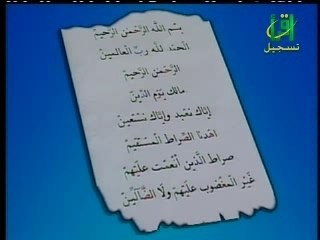 اقرأ
تسجيل
بسم الله الرحمن الرحيم
الحمد لله رب العالمين
الرحمن الرحيم
مالك يوم الدين
إياك نعبد وإياك نستعين
اهدنا الصراط المستقيم
صراط الذين أنعمت عليهم
غير المغضوب عليهم ولا الضالين